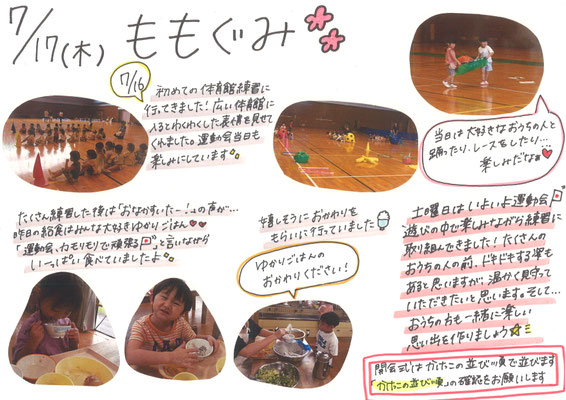 7/17(木) ももぐみ
7/16
初めての体育館練習に
行ってきました!広い体育館に
入るとわくわくした表情を見せて
くれました。運動会当日も
楽しみにしています
当日は大好きなおうちの人と
踊ったり、レースをしたり…
楽しみだなぁ
たくさん練習した後は「おなかすいたー!」の声が…
昨日の給食はみんな大好きゆかりごはん
「運動会、力モリモリで頑張る」と言いながら
いーっぱい食べていましたよ
嬉しそうにおかわりを
もらいに行っていました
ゆかりごはんの
おかわりください!
土曜日はいよいよ運動会
遊びの中で楽しみながら練習に
取り組んできました!たくさんの
おうちの人の前、ドキドキする姿も
あると思いますが、温かく見守って
いただきたいと思います。そして…
おうちの方も一緒に楽しい
思い出を作りましょう
開会式はかけっこの並び順で並びます
「かけっこの並び順」の確認をお願いします